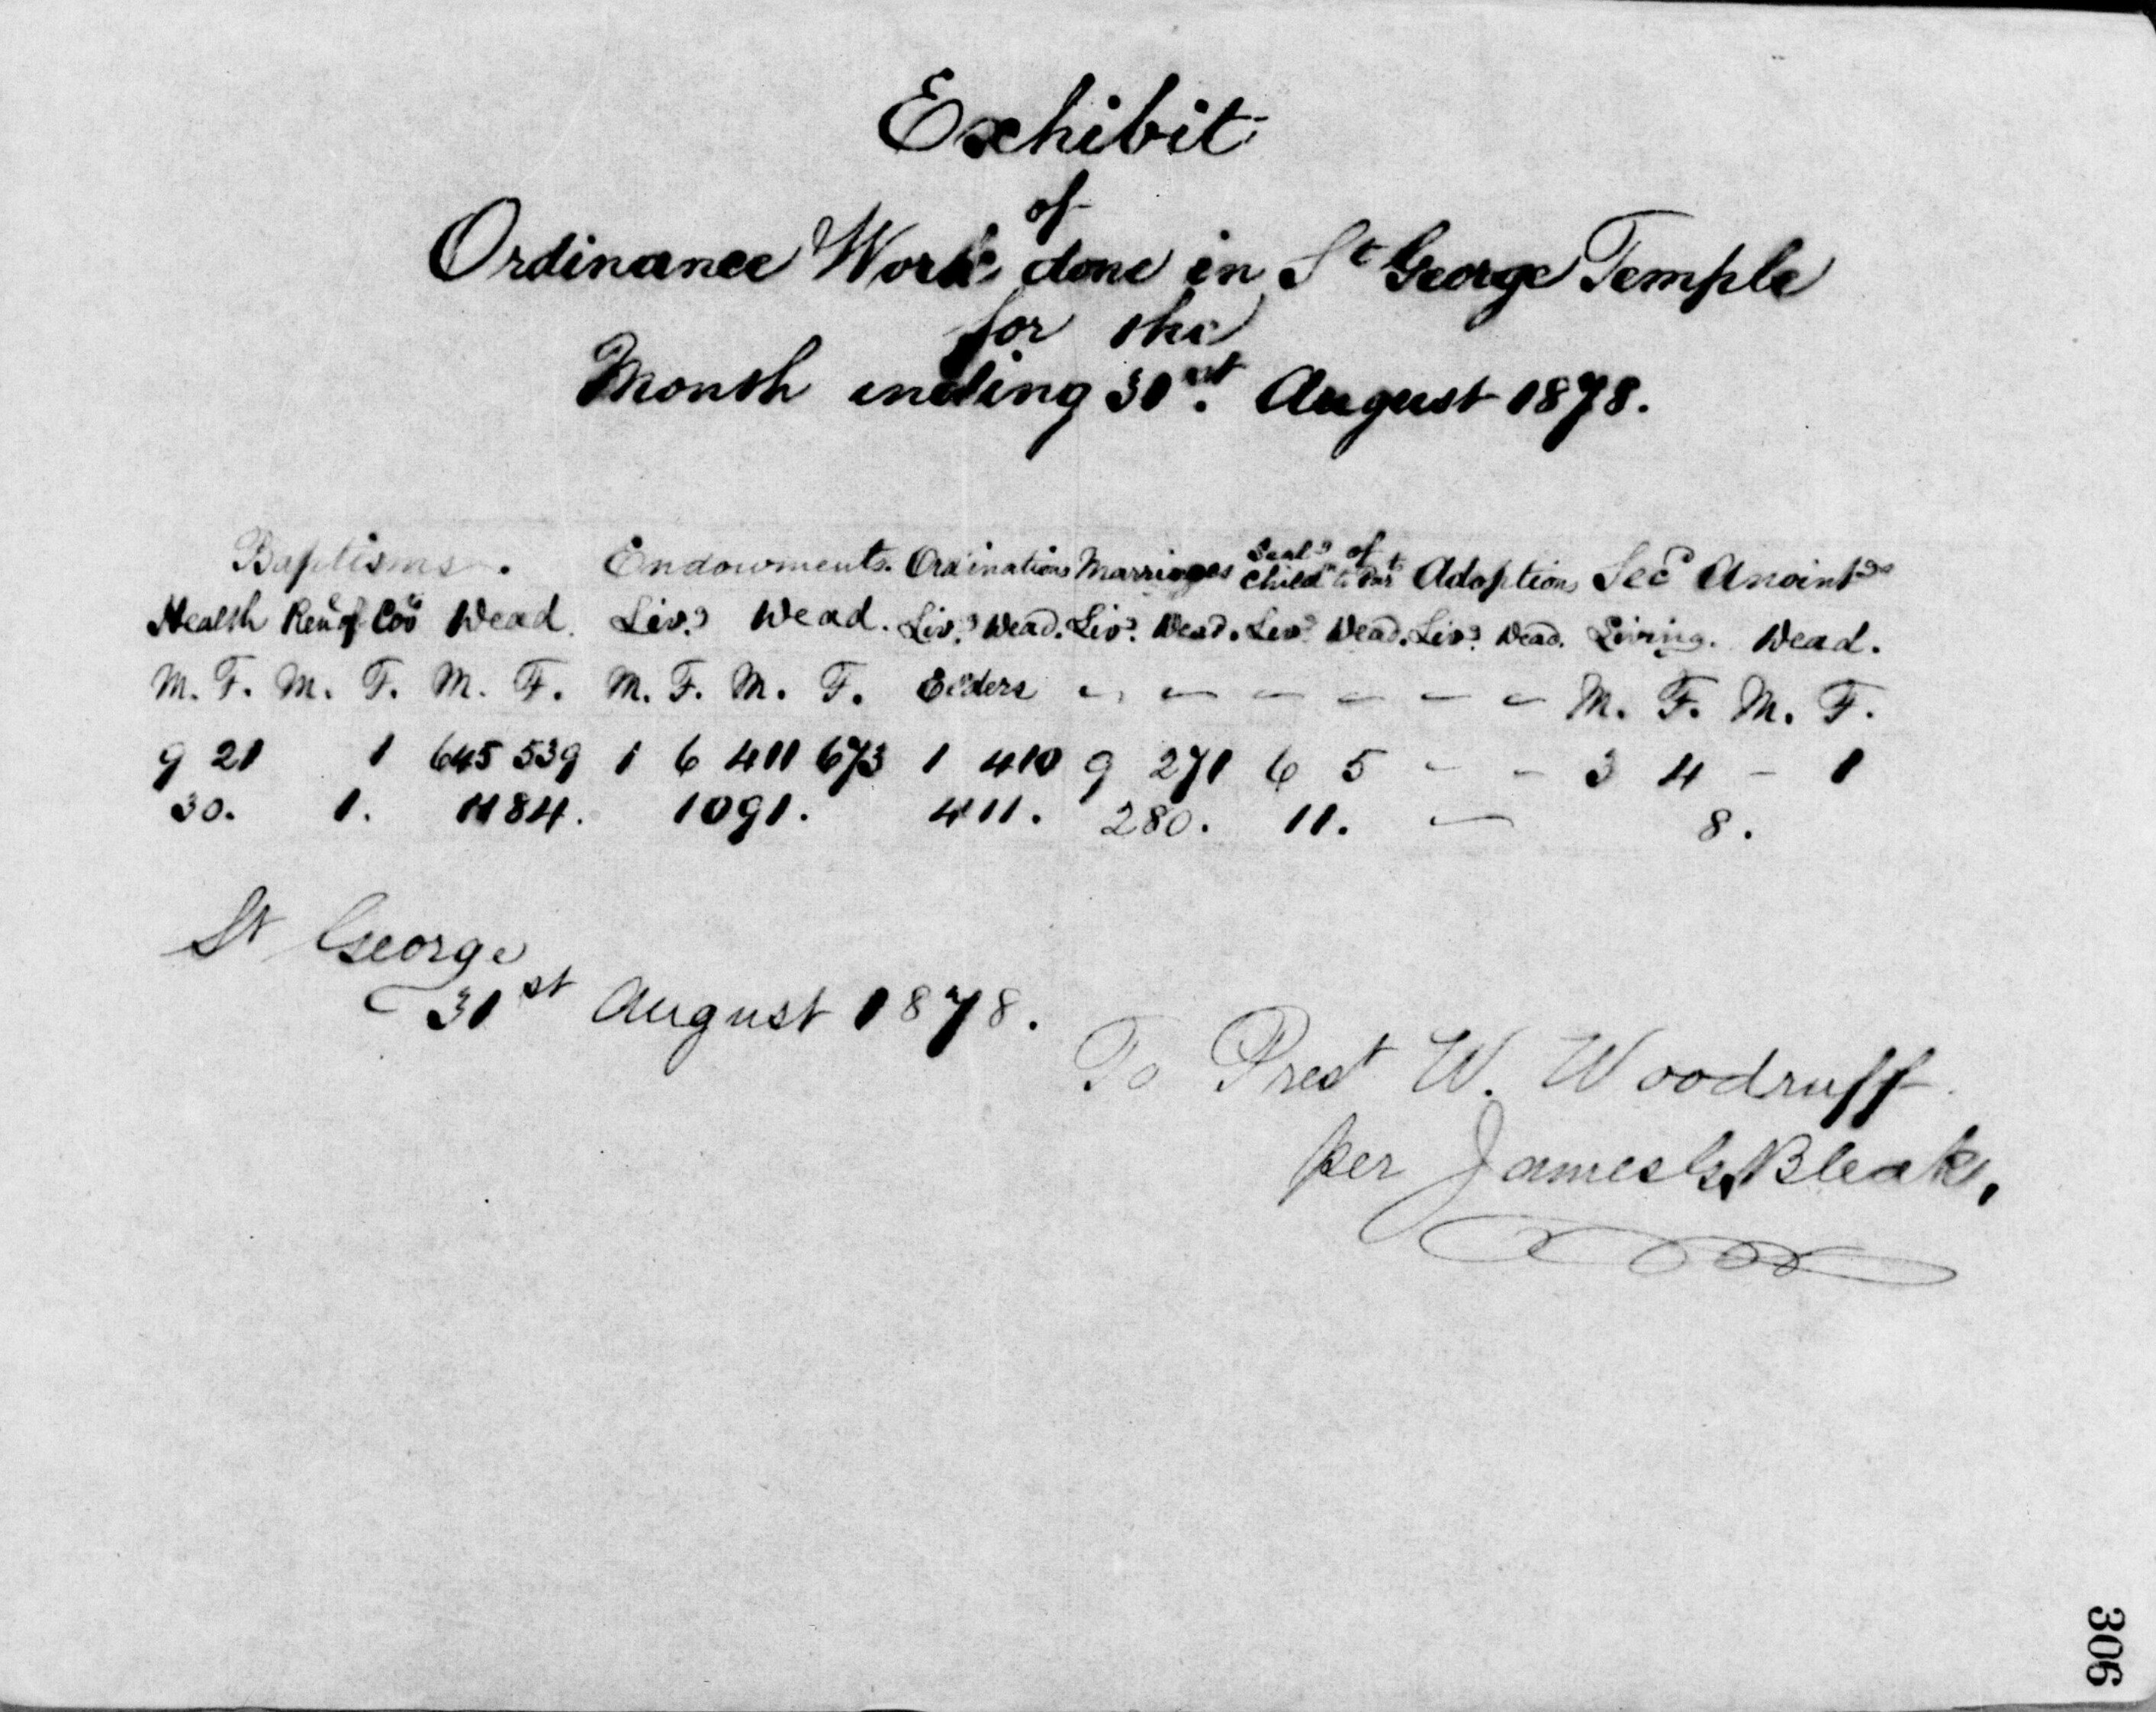 Exhibit
of
Ordinance Work done in St George Temple
for the
Month ending 31st. August 1878.
Baptisms. Endowments. Ordinations Marriages Seals of Childn to Part Adoptions Secd Anointgs
Health Ren of Cov Dead. Livg Dead. Livg Dead. Livg Dead. Livg Dead. Livg Dead. Living. Dead.
M. F. M. F. M. F. M. F. M. F. Elders - - - - - - - M. F. M. F.
9 21 1 645 539 1 6 411 673 1 410 9 271 6 5 - - 3 4 - 1
30. 1. 1184. 1091. 411. 280. 11. - 8.
St George
31st August 1878.
To Prest W. Woodruff
per James G. Bleak,
306